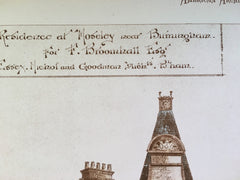 Residence at Moseley near Birmingham.
for F. Broomhall Esqr
Essex, Nichol and Goodman Archts. B'ham.